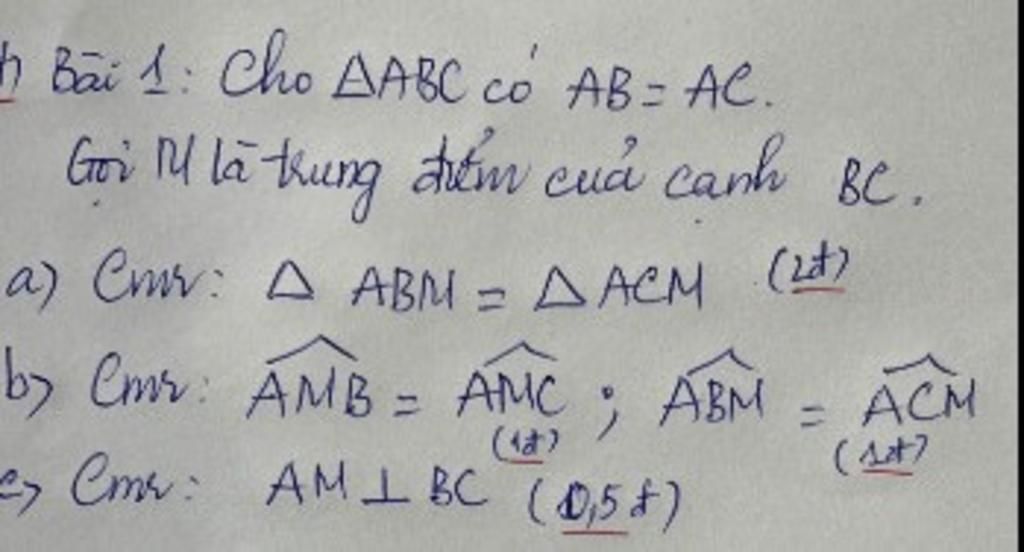 Bài 1: Cho ΔABC có AB = AC.
Gọi M là trung điểm của cạnh BC.
a) Cmr: Δ ABM = Δ ACM (2đ)
b) Cmr: \widehat{AMB} = \widehat{AMC} ; \widehat{ABM} = \widehat{ACM}
(1đ) (1đ)
c) Cmr: AM ⊥ BC (0,5đ)